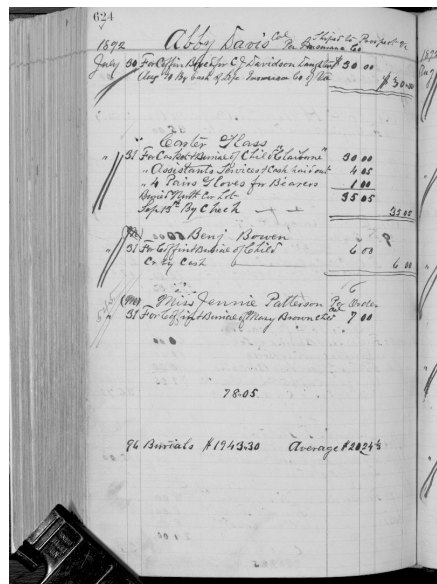 624
1892 Abby Davis Col Shipd to
Per Insurance Co
July 30 For Coffin Box &c for C J Davidson $30 00
Aug By Cash of Life Insurance Co of Va $30 00
" Carter Glass
" 31 For Casket & Burial of Child "Claiborne" 30 00
" Assistants Services & Cash laid out 4 05
" 4 Pairs Gloves for Bearers 1 00
Buried North Cor Lot 35 05
Sep 13th By Check 35 05
Benj Bowen
" 31 For Coffin & Burial of Child 6 00
Cr by Cash 6 00
Miss Jennie Patterson Per Order
" 31 For Coffin & Burial of Mary Brown Col 7 00
78.05
96 Burials $1943.30 Average $20 24